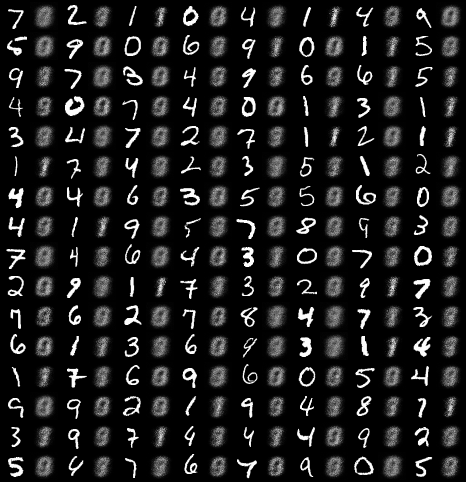 7 2 1 0 4 1 4 9
5 9 0 6 9 0 1 5
9 7 3 4 9 6 6 5
4 0 7 4 0 1 3 1
3 4 7 2 7 1 2 1
1 7 4 2 3 5 1 2
4 4 6 3 5 5 6 0
4 1 9 5 7 8 9 3
7 4 6 4 3 0 7 0
2 9 1 7 3 2 9 7
7 6 2 7 8 4 7 3
6 1 3 6 9 3 1 4
1 7 6 9 6 0 5 4
9 9 2 1 9 4 8 7
3 9 7 4 4 4 9 2
5 4 7 6 7 9 0 5